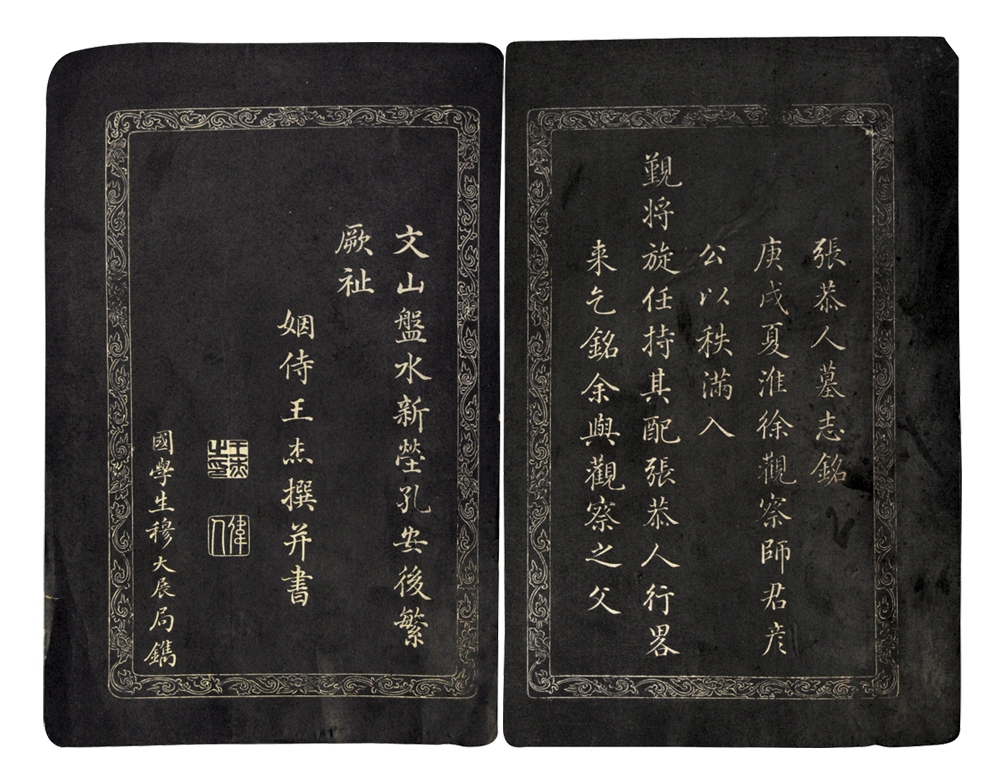 張恭人墓志銘
庚戌夏淮徐觀察師君彦
公以秩滿入
覲将旋任持其配張恭人行畧
来乞銘余與觀察之父
文山盤水新塋孔安後繁
厥祉
姻侍王杰撰并書
王杰之印
偉人
國學生穆大展局鐫